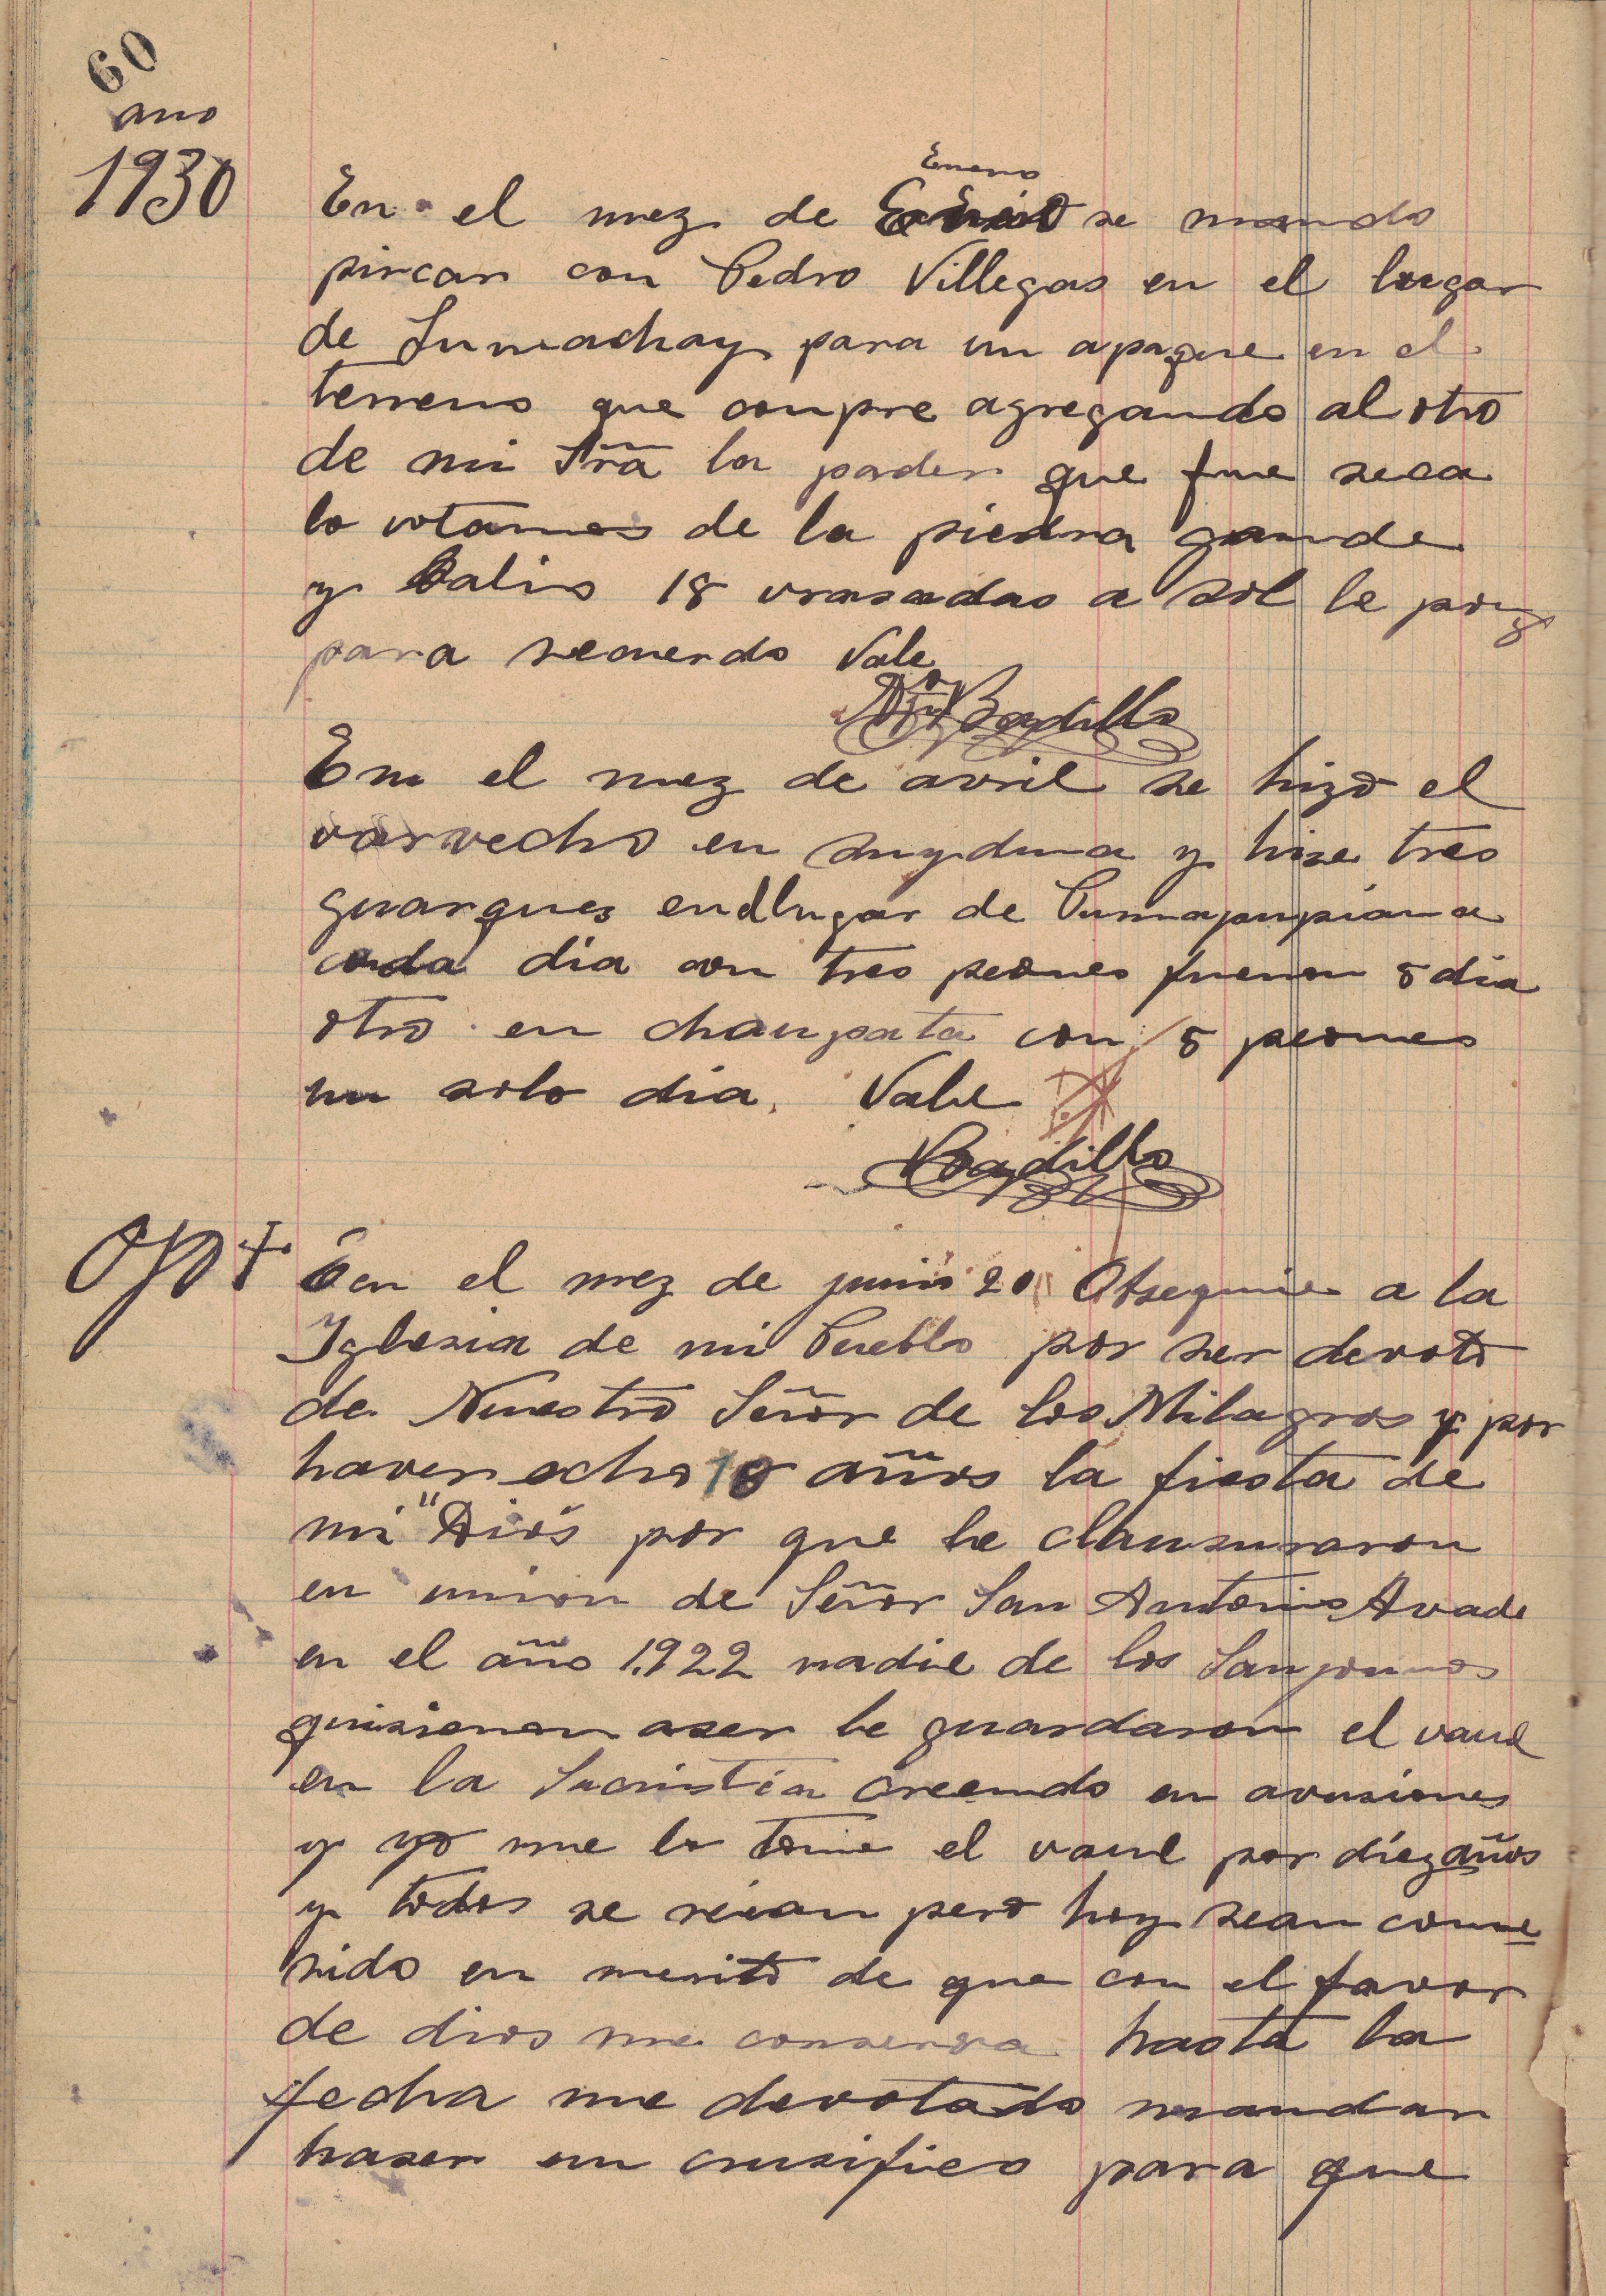 60
ano
1930
Enero
En el mez de se mando
pircar con Pedro Villegas en el lugar
de Sumachay para un apaque en el
terreno que compre agregando al otro
de mi Sra la pader que fue seca
lo votamos de la piedra grande
y Salio 18 vrasadas a sol le pong
para recuerdo Vale
Badillo
En el mez de avril se hizo el
varvecho en y hise tres
guarques en el lugar de
cada dia con tres peones fueron 5 dia
otro en chaupata con 5 peones
un solo dia. Vale
Badillo
Ojo +
en el mez de junio 20 Obsequie a la
Iglesia de mi Pueblo por ser devoto
de Nuestro Señor de los Milagros y por
haver echo 10 años la fiesta de
mi "Dios por que le clausuraron
en union de Señor San Antonio Avade
en el año 1.922 nadie de los
quisieron aser le guardaron el vaul
en la Sacristia creendo en avusiones
y yo me lo tome el vaul por diez años
y todos se reian pero hoy sean conve
sido en merito de que con el favor
de dios me conserva hasta la
fecha me devotado mandar
haser un crusifico para que